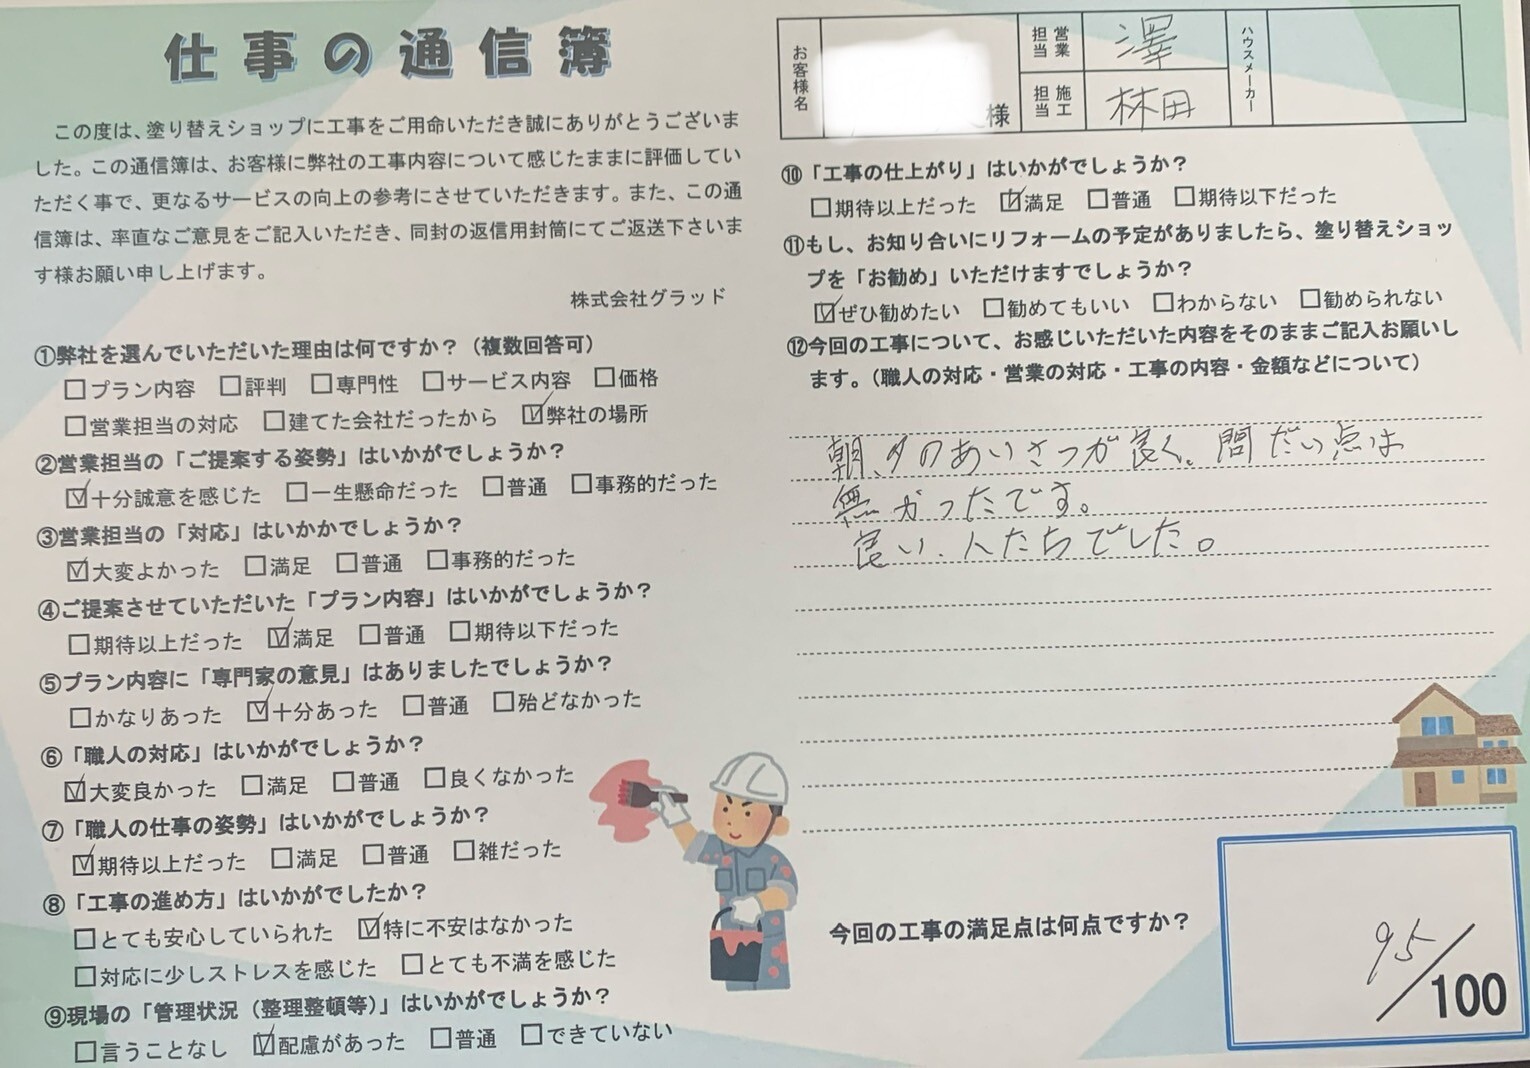 仕事の通信簿
この度は、塗り替えショップに工事をご用命いただき誠にありがとうございま
した。この通信簿は、お客様に弊社の工事内容について感じたままに評価してい
ただく事で、更なるサービスの向上の参考にさせていただきます。また、この通
信簿は、率直なご意見をご記入いただき、同封の返信用封筒にてご返送下さいま
す様お願い申し上げます。
株式会社グラッド
①弊社を選んでいただいた理由は何ですか？（複数回答可）
□プラン内容 □評判 □専門性 □サービス内容 □価格
□営業担当の対応 □建てた会社だったから ☑弊社の場所
②営業担当の「ご提案する姿勢」はいかがでしょうか？
☑十分誠意を感じた □一生懸命だった □普通 □事務的だった
③営業担当の「対応」はいかかでしょうか？
☑大変よかった □満足 □普通 □事務的だった
④ご提案させていただいた「プラン内容」はいかがでしょうか？
□期待以上だった ☑満足 □普通 □期待以下だった
⑤プラン内容に「専門家の意見」はありましたでしょうか？
□かなりあった ☑十分あった □普通 □殆どなかった
⑥「職人の対応」はいかがでしょうか？
☑大変良かった □満足 □普通 □良くなかった
⑦「職人の仕事の姿勢」はいかがでしょうか？
☑期待以上だった □満足 □普通 □雑だった
⑧「工事の進め方」はいかがでしたか？
□とても安心していられた ☑特に不安はなかった
□対応に少しストレスを感じた □とても不満を感じた
⑨現場の「管理状況（整理整頓等）」はいかがでしょうか？
□言うことなし ☑配慮があった □普通 □できていない
お客様名 様 営業担当 澤 ハウスメーカー
施工担当 林田
⑩「工事の仕上がり」はいかがでしょうか？
□期待以上だった ☑満足 □普通 □期待以下だった
⑪もし、お知り合いにリフォームの予定がありましたら、塗り替えショッ
プを「お勧め」いただけますでしょうか？
☑ぜひ勧めたい □勧めてもいい □わからない □勧められない
⑫今回の工事について、お感じいただいた内容をそのままご記入お願いし
ます。（職人の対応・営業の対応・工事の内容・金額などについて）
朝、夕のあいさつが良く。問だい点は
無かったです。
良い、人たちでした。
今回の工事の満足点は何点ですか？
95/100